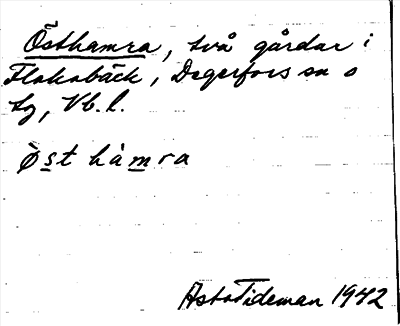 Östhamra, två gårdar i
Flakabäck, Degerfors sn o
tg, Vb. l.
Öst hàmra
Asta Tideman 1942